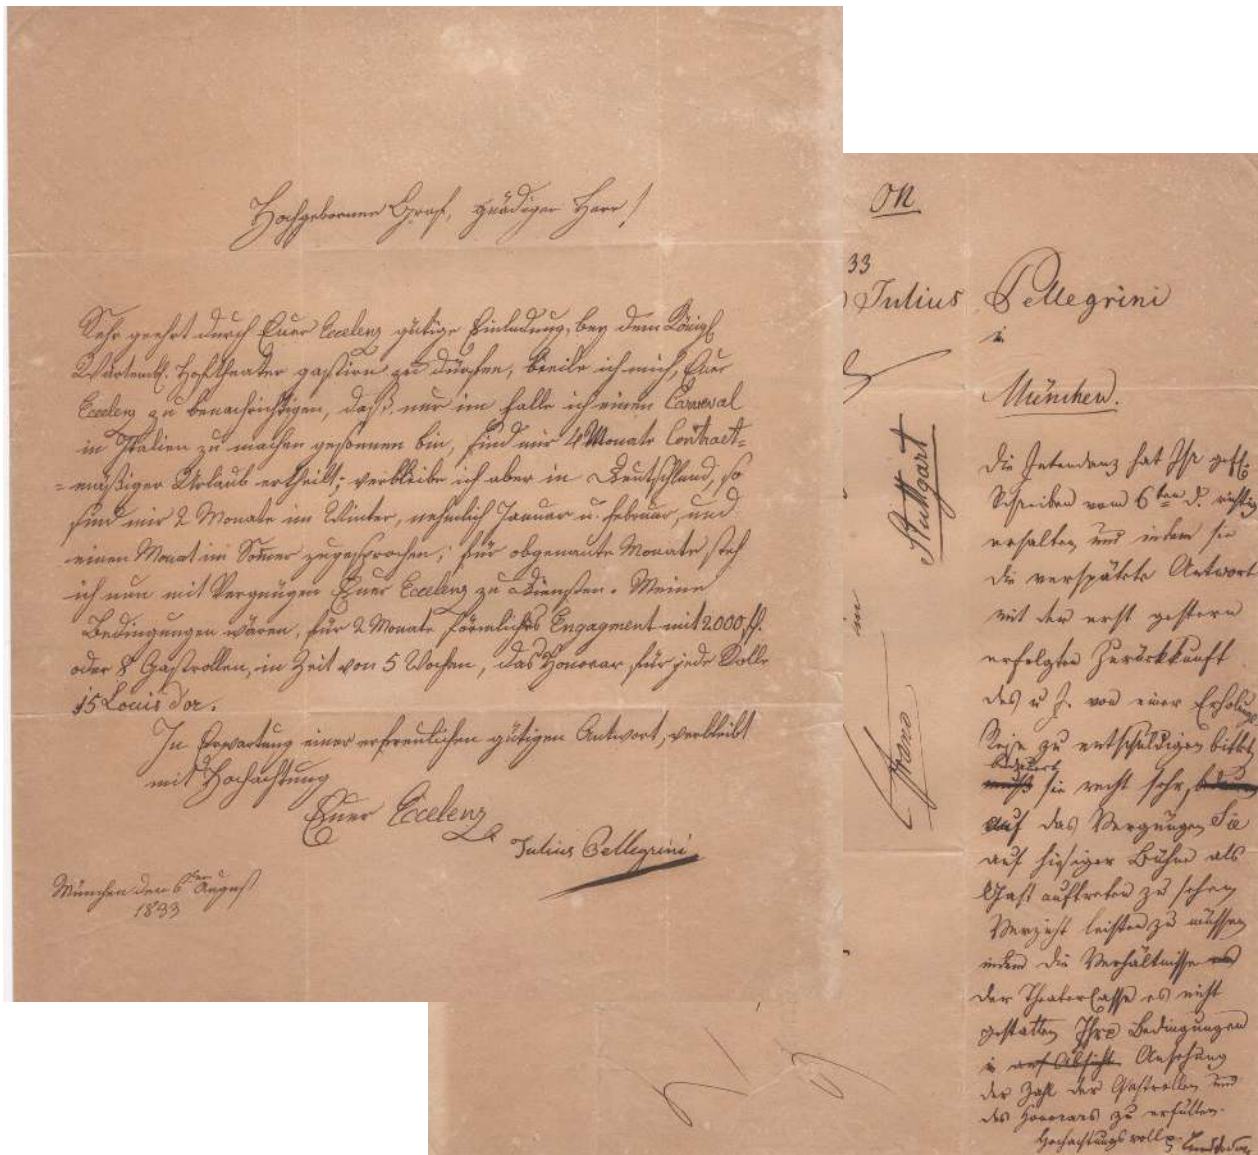 Hochgeborner Graf, gnädiger Herr!
Sehr geehrt durch Euer Excelenz gütige Einladung, bey dem Königl.
Würtemb. Hoftheater gastiren zu dürfen, beeile ich mich, Euer
Excelenz zu benachrichtigen, daß nur im Falle ich einen Carneval
in Italien zu machen gesonnen bin, sind mir 4 Monate Contract=
=mäßiger Urlaub ertheilt; verbleibe ich aber in Deutschland, so
sind mir 2 Monate im Winter, nehmlich Januar u. Februar, und
einen Monat im Somer zugesprochen; für obgenante Monate steh
ich nun mit Vergnügen Euer Excelenz zu Diensten. Meine
Bedingungen wären, für 2 Monate förmliches Engagment mit 2000 fl.
oder 8 Gastrollen, in Zeit von 5 Wochen, das Honorar für jede Rolle
15 Louis d'or.
In Erwartung einer erfreulichen gütigen Antwort, verbleibt
mit Hochachtung
Euer Excelenz
Julius Pellegrini
München den 6ten August
1833
An
33
Julius Pellegrini
in
München.
Die Intendanz hat Ihr gefl.
Schreiben vom 6ten d. richtig
erhalten und indem sie
die verspätete Antwort
mit der erst gestern
erfolgten Zurückkunft
des u. J. von einer Erholungs
Reise zu entschuldigen bittet,
bedauert
sie recht sehr,
auf das Vergnügen Sie
auf hiesiger Bühne als
Gast auftreten zu sehen
Verzicht leisten zu müssen
indem die Verhältnisse
der Theatercasse es nicht
gestatten Ihre Bedingungen
in auf Absicht Ansehung
der Zahl der Gastrollen und
des Honorars zu erfüllen.
Hochachtungsvoll
Stuttgart
in
Franco